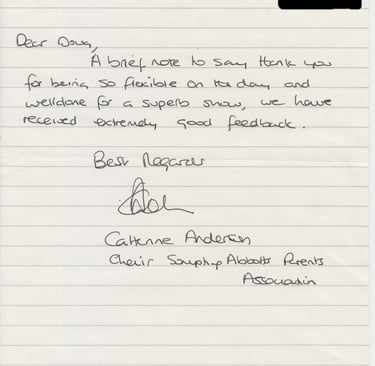 Dear Doug,
A brief note to say thank you
for being so flexible on the day and
welldone for a superb show, we have
received extremely good feedback.
Best Regards
Catherine Anderson
Chair Abbotts Parents
Association